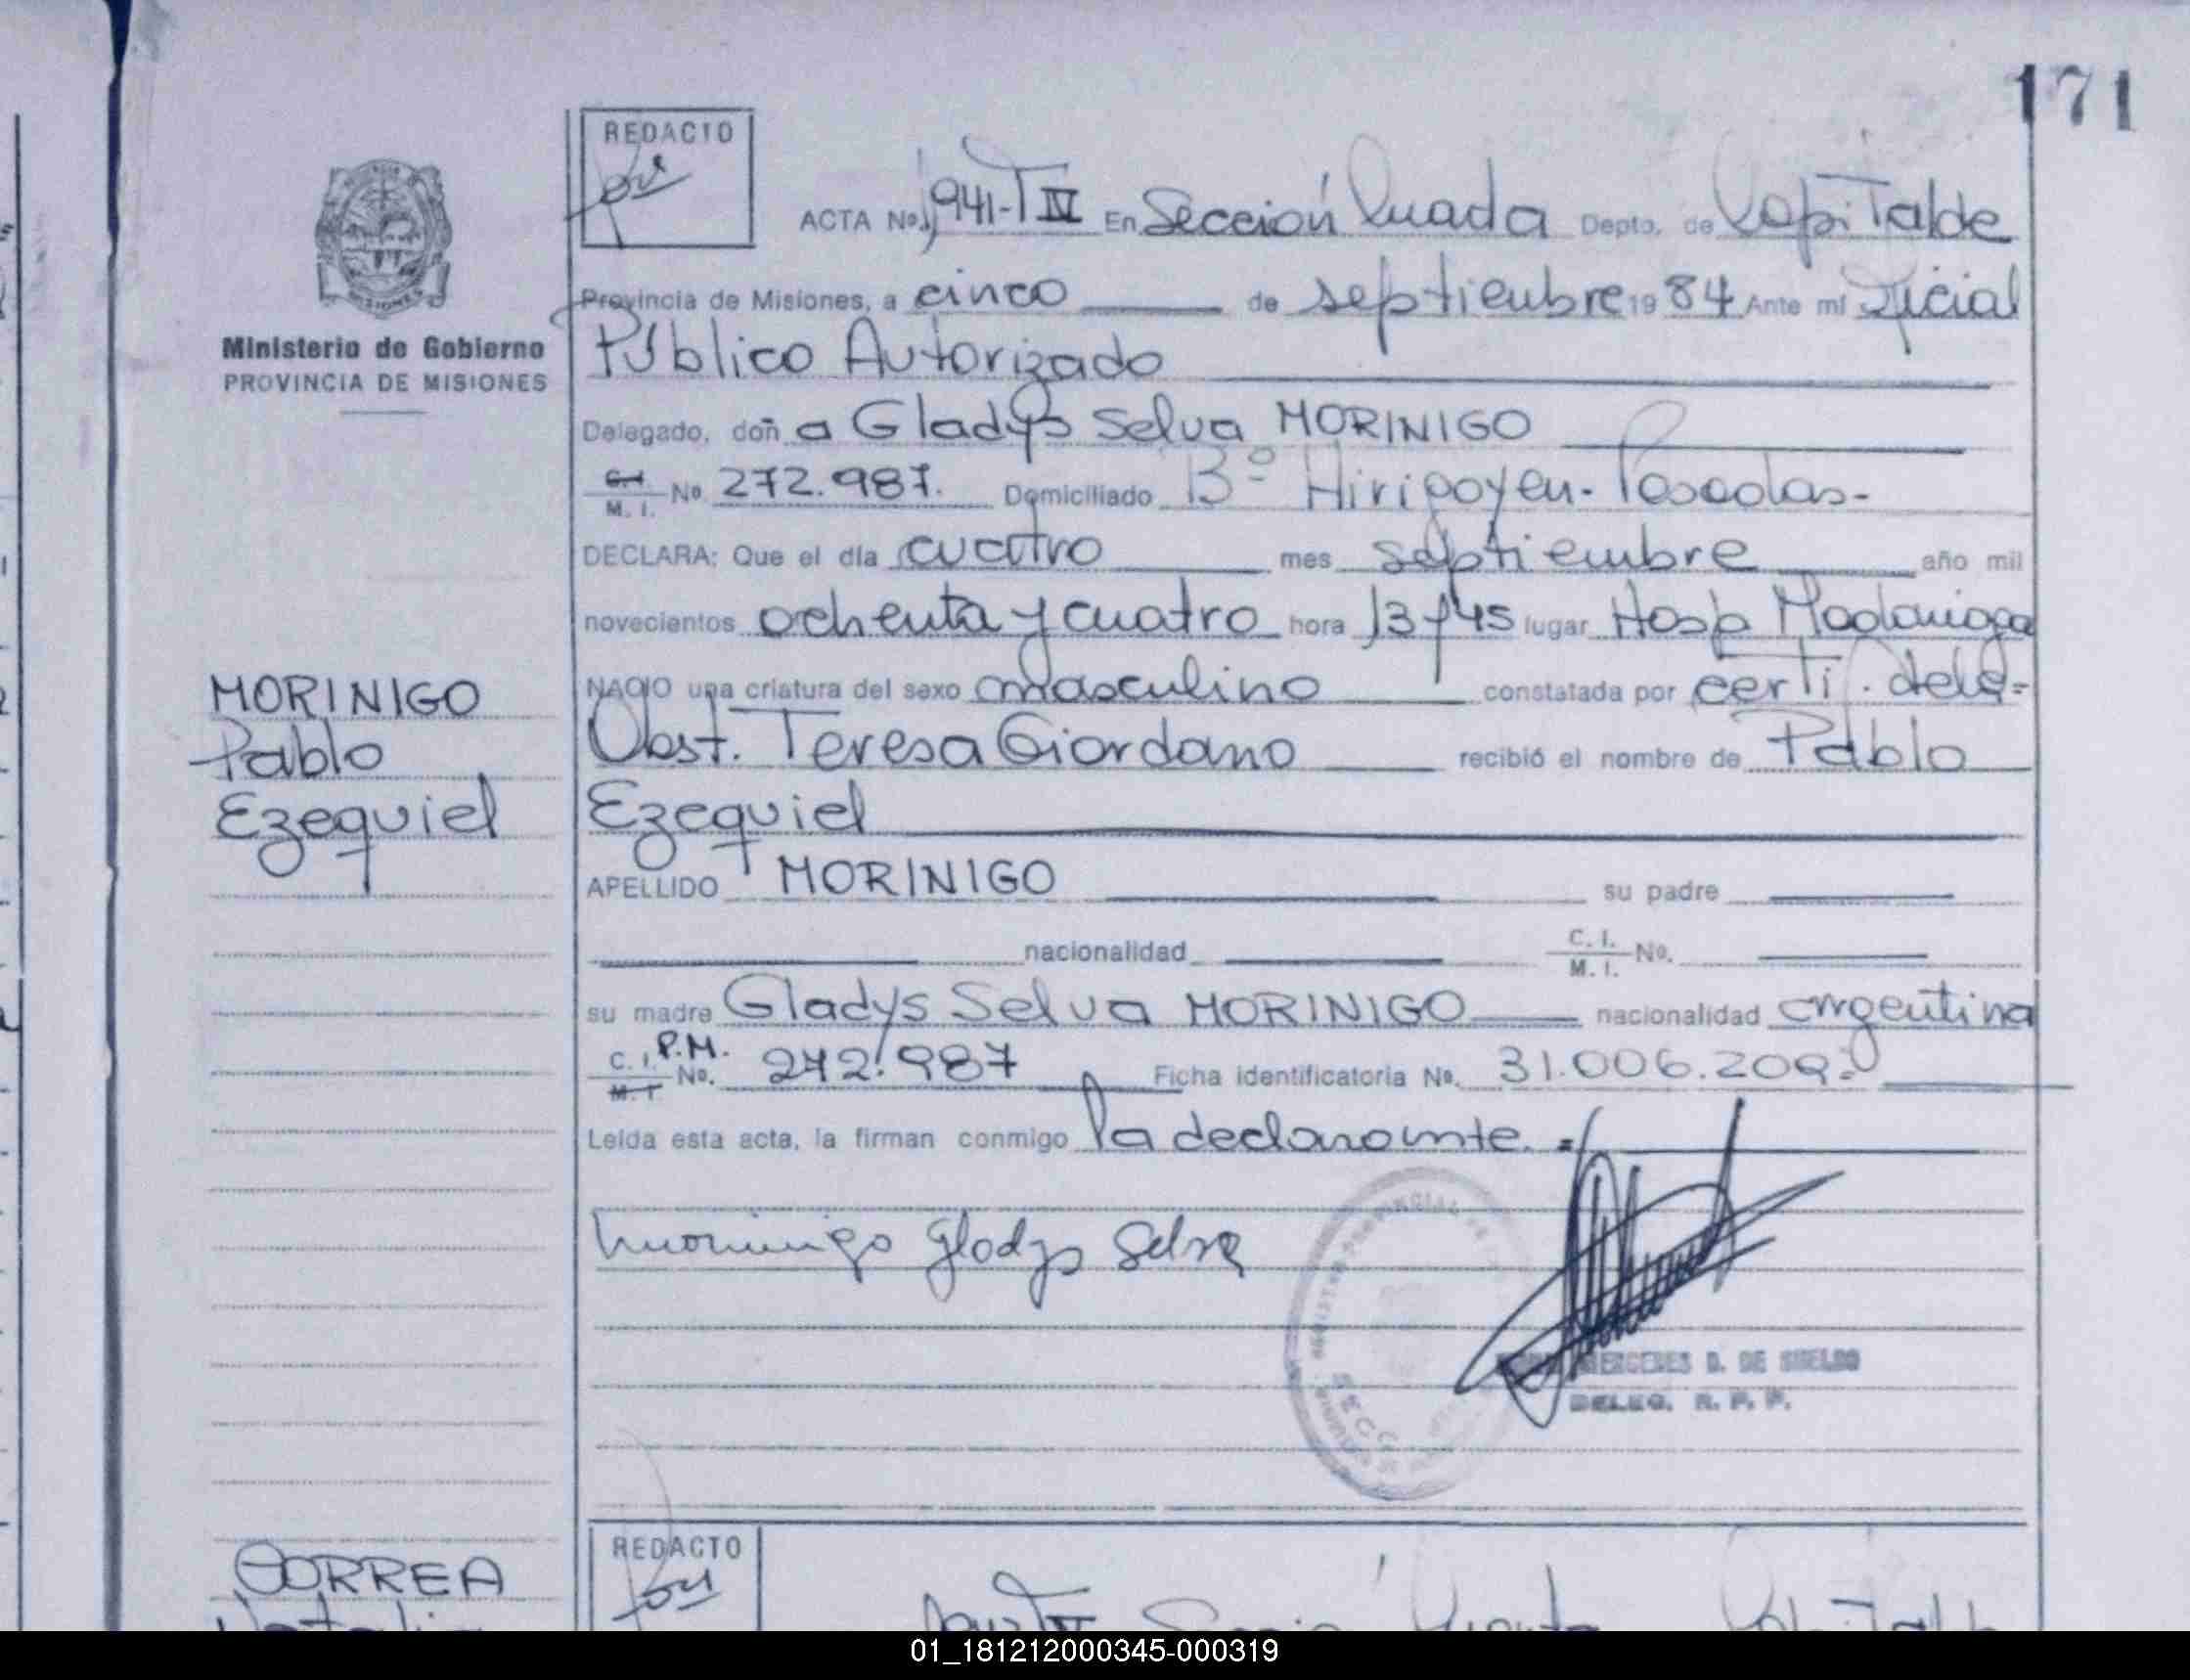 171
REDACTO
ACTA No. 1941-T IV En Sección Cuada Depto. de Capital de
Provincia de Misiones, a cinco de septiembre 19 84 Ante mí Oficial
Público Autorizado
Ministerio de Gobierno
PROVINCIA DE MISIONES
Delegado, doña Gladys Selva MORINIGO
C.I. M. I. No 272.987. Domiciliado Bº Hirigoyen - Posadas -
DECLARA: Que el día cuatro mes septiembre año mil
novecientos ochenta y cuatro hora 13 y 45 lugar Hosp Madariaga
NACIO una criatura del sexo masculino constatada por certif. dela=
Obst. Teresa Giordano recibió el nombre de Pablo
Ezequiel
MORINIGO
Pablo
Ezequiel
APELLIDO MORINIGO su padre
nacionalidad C. I. M. I. No.
su madre Gladys Selva MORINIGO nacionalidad argentina
C. I. M. I. P.M. No. 272.987 Ficha identificatoria No. 31.006.209.
Leída esta acta, la firman conmigo la declarante. =
Morinigo Gladys Selva
MERCEDES D. DE
DELEG. R. P. P.
CORREA
REDACTO
01_181212000345-000319